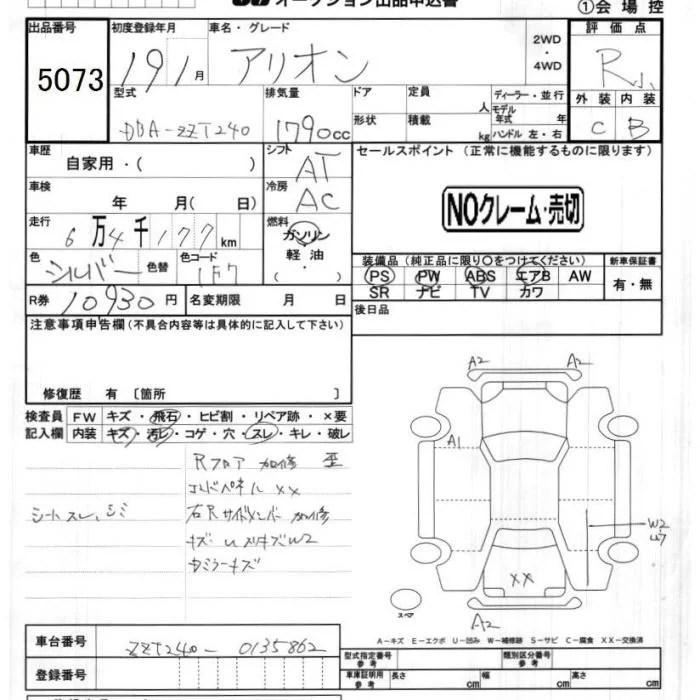 オークション出品申込書
①会場控
出品番号 初度登録年月 車名・グレード 2WD ・ 4WD 評価点
5073 19 1月 アリオン R小
型式 排気量 ドア 定員 人 ディーラー・並行 モデル年式 年 外装 内装
DBA-ZZT240 1790cc 形状 積載 kg ハンドル 左・右 C B
車歴 自家用・( ) シフト AT セールスポイント (正常に機能するものに限ります)
車検 年 月( 日) 冷房 AC
NOクレーム・売切
走行 6万4千177km 燃料 ガソリン 軽油 ・ ( )
色 シルバー 色替 色コード 1F7
装備品(純正品に限り○をつけてください) 新車保証書
PS PW ABS エアB AW 有・無
SR ナビ TV カワ
R券 10930円 名変期限 月 日 後日品
注意事項申告欄(不具合内容等は具体的に記入して下さい)
修復歴 有〔箇所 〕
検査員 FW キズ・飛石・ヒビ割・リペア跡・×要
記入欄 内装 キズ・汚レ・コゲ・穴・スレ・キレ・破レ
Rフロア 加修 歪
エンドパネル XX
シートスレ、シミ 右Rサイドメンバー 加修
キズ U スリキズW2
カミラーキズ
A2 A2
A1
W2
U7
XX
スペア
A2
A-キズ E-エクボ U-凹み W-補修跡 S-サビ C-腐食 XX-交換済
車台番号 ZZT240-0135862
型式指定番号 参考 類別区分番号 参考
登録番号
車庫証明用 参考 長さ cm 幅 cm 高さ cm